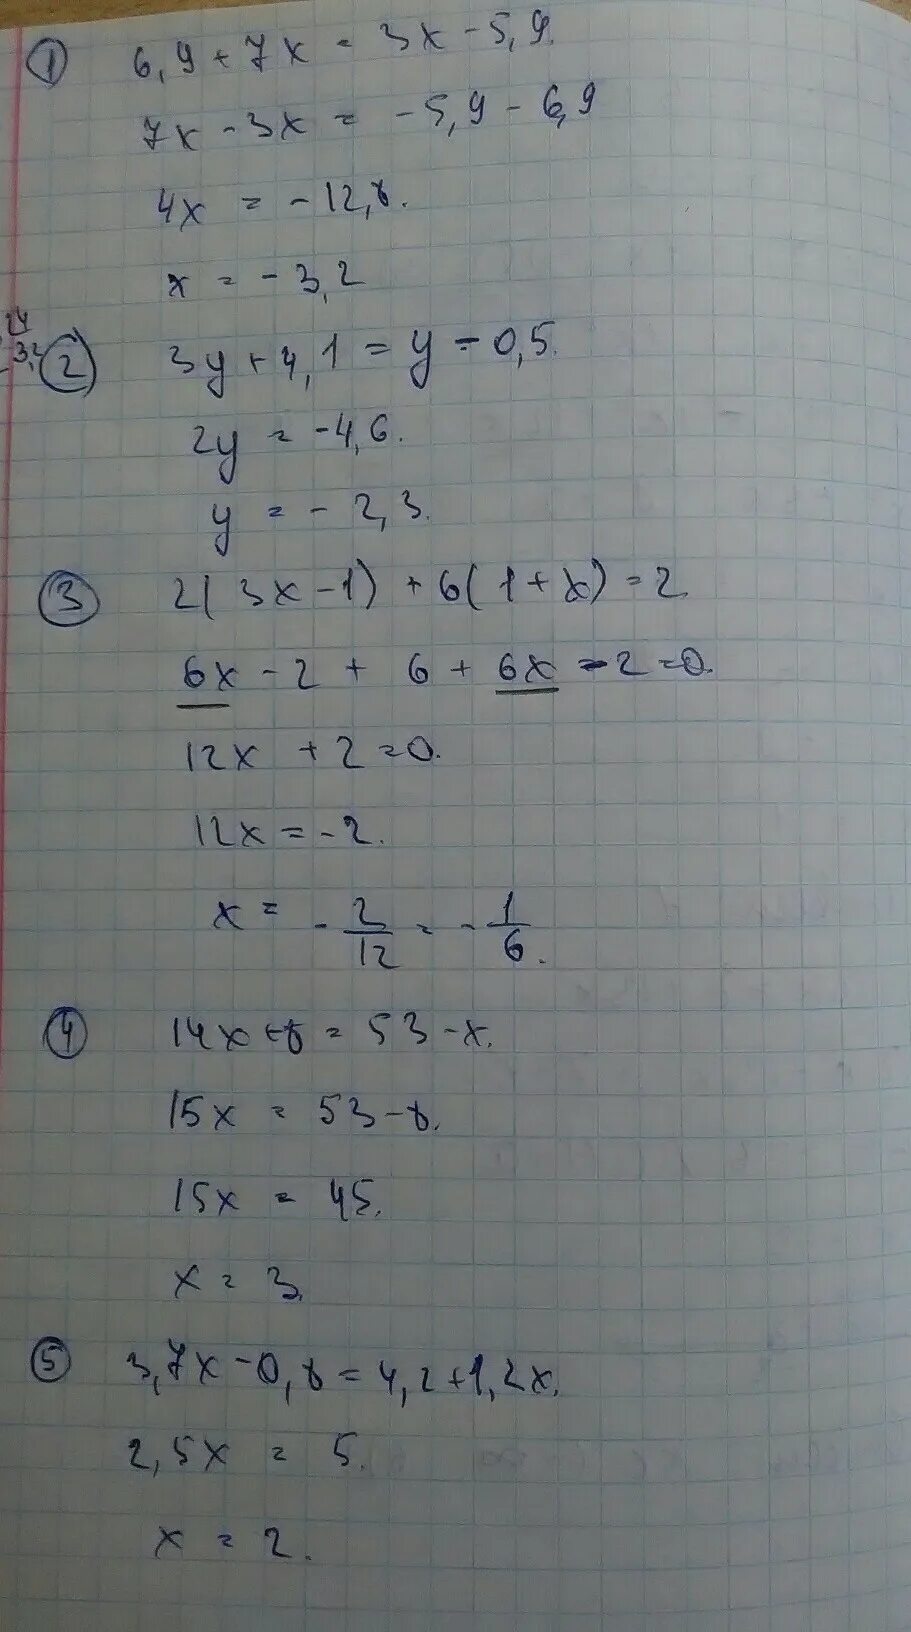 1 6,9 + 7x = 3x - 5,9.
7x - 3x = -5,9 - 6,9
4x = -12,8.
x = -3,2
2 3y + 4,1 = y - 0,5.
2y = -4,6.
y = -2,3.
3 2(3x - 1) + 6(1 + x) = 2
6x - 2 + 6 + 6x - 2 = 0.
12x + 2 = 0.
12x = -2.
x = -2/12 = -1/6.
4 14x + 8 = 53 - x.
15x = 53 - 8.
15x = 45.
x = 3.
5 3,7x - 0,8 = 4,2 + 1,2x.
2,5x = 5.
x = 2.